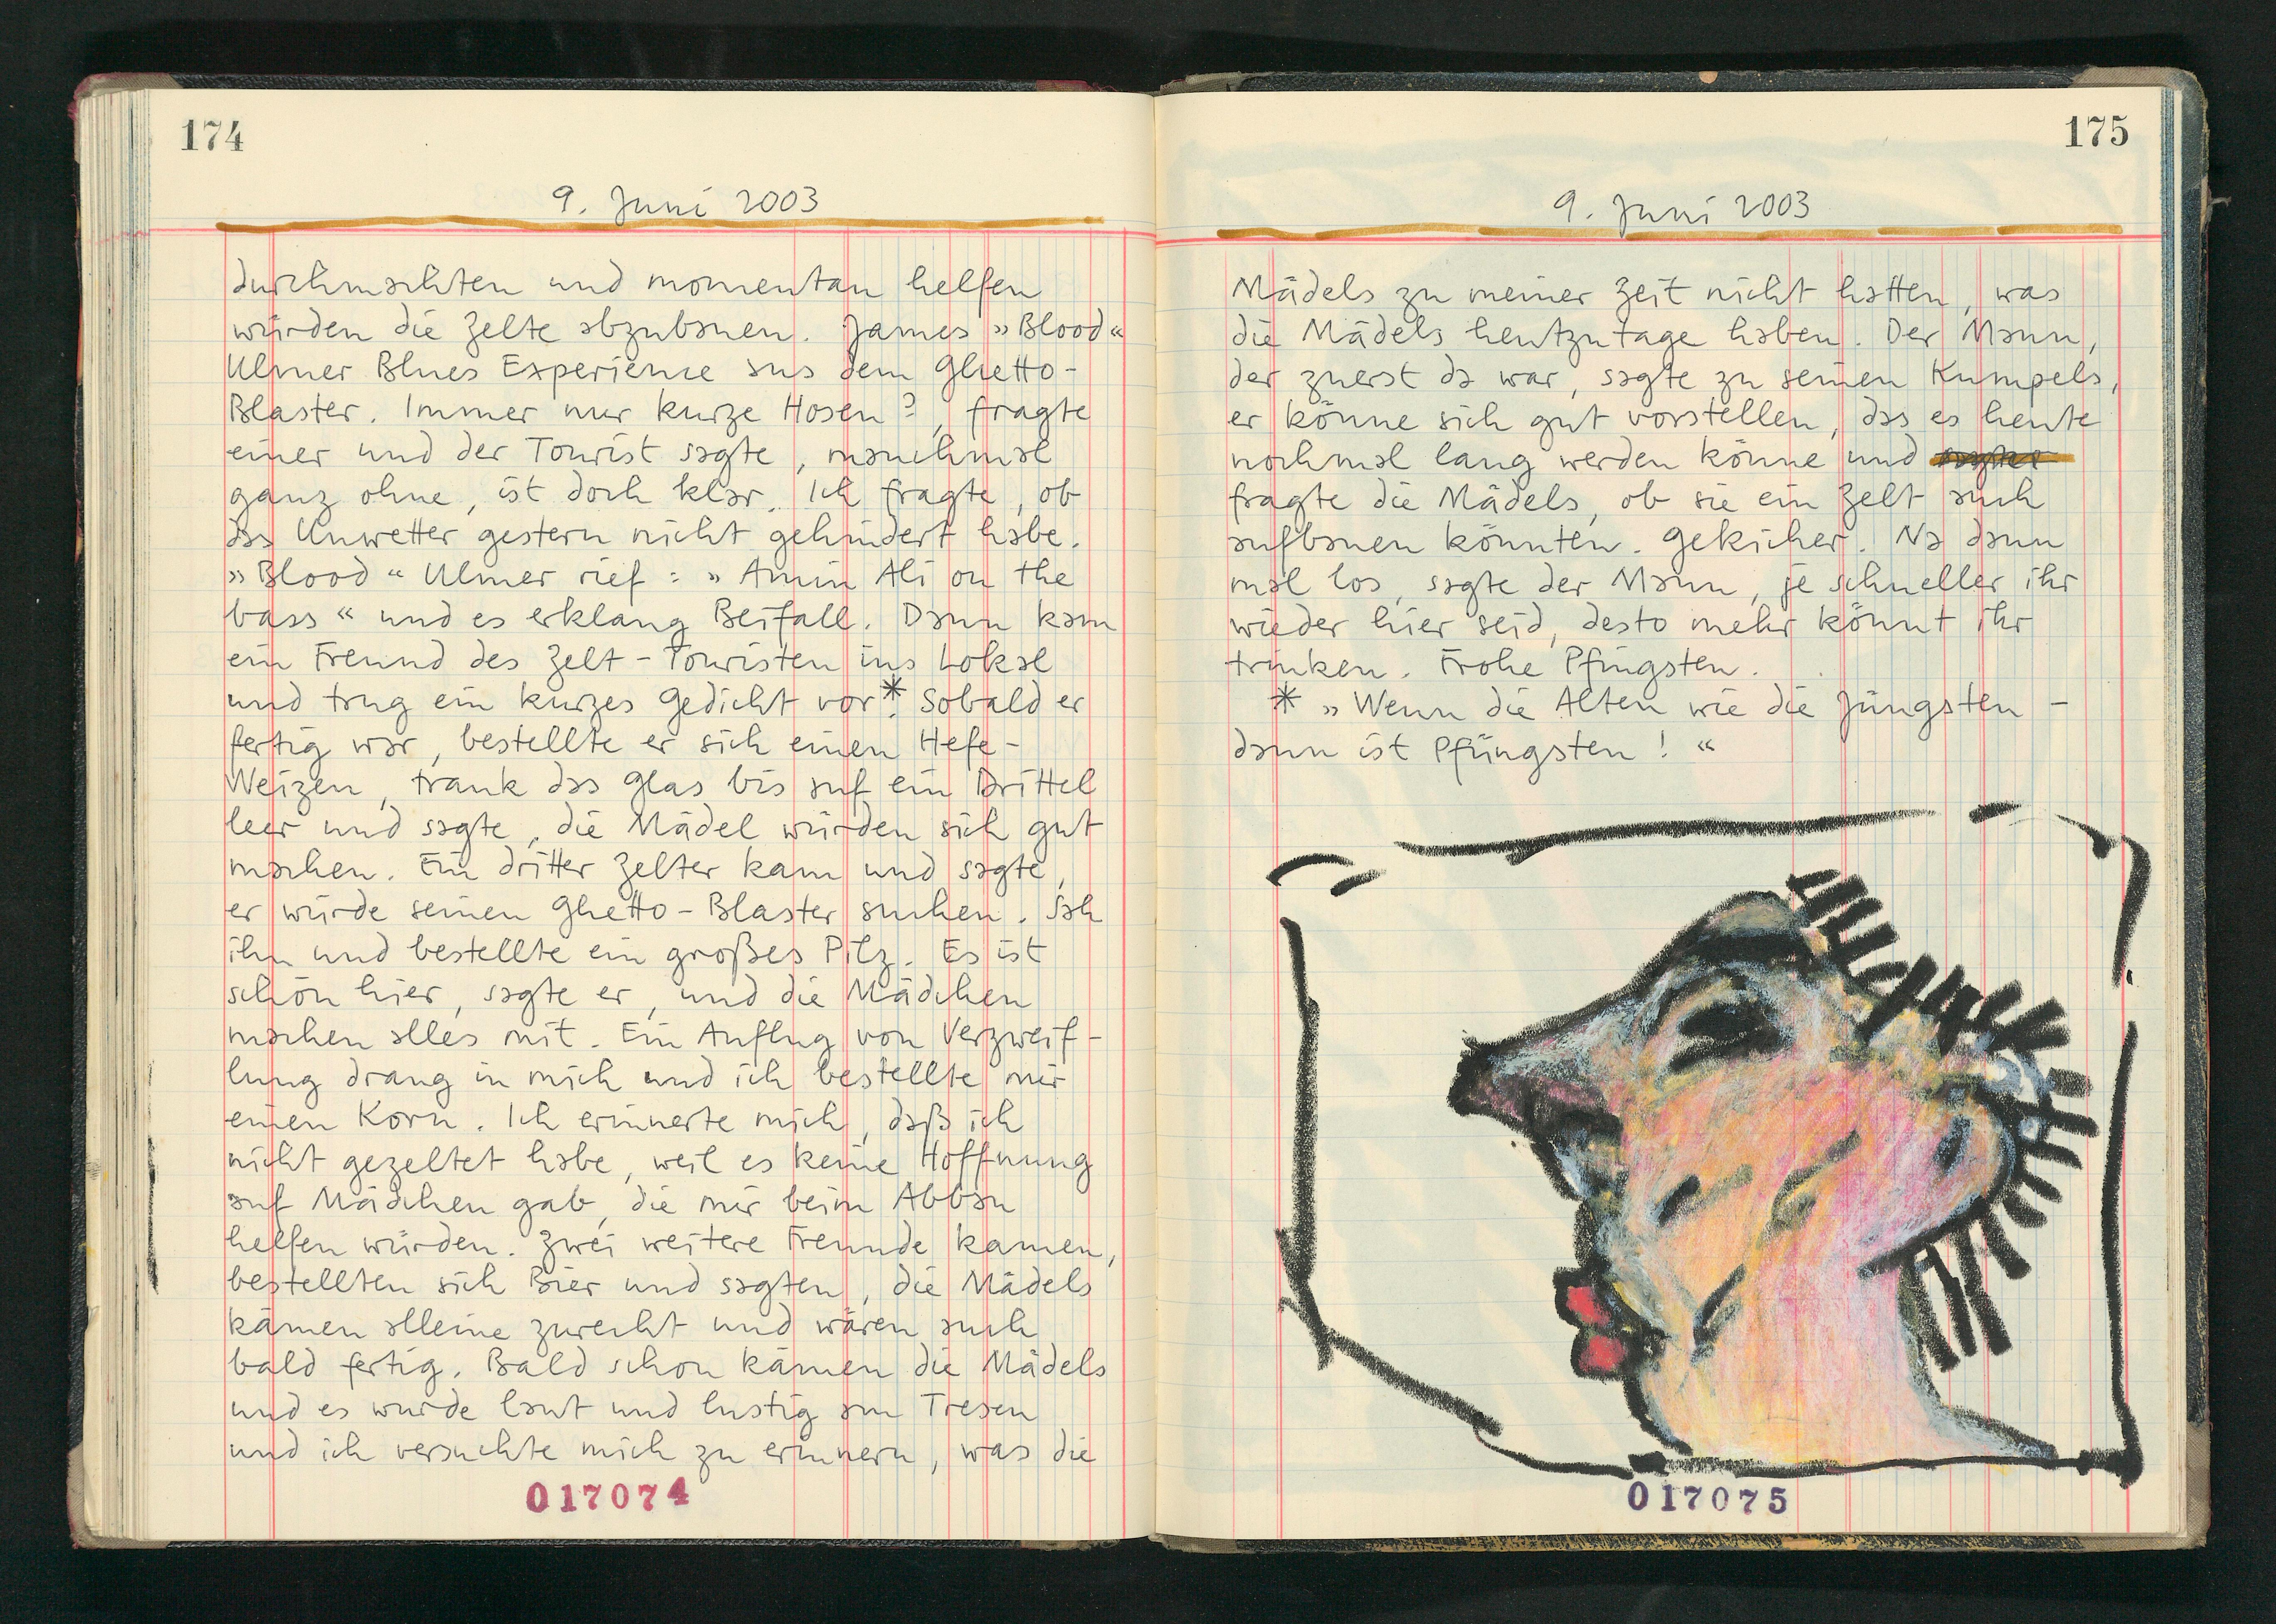 174
9. Juni 2003
durchmachten und momentan helfen
würden die Zelte abzubauen. James »Blood«
Ulmer Blues Experience aus dem Ghetto-
Blaster. Immer nur kurze Hosen?, fragte
einer und der Tourist sagte, manchmal
ganz ohne, ist doch klar. Ich fragte, ob
das Unwetter gestern nicht gehindert habe.
»Blood« Ulmer rief: »Amin Ali on the
bass« und es erklang Beifall. Dann kam
ein Freund des Zelt-Touristen ins Lokal
und trug ein kurzes Gedicht vor*. Sobald er
fertig war, bestellte er sich einen Hefe-
Weizen, trank das Glas bis auf ein Drittel
leer und sagte, die Mädel würden sich gut
machen. Ein dritter Zelter kam und sagte,
er würde seinen Ghetto-Blaster suchen. Sah
ihn und bestellte ein großes Pilz. Es ist
schön hier, sagte er, und die Mädchen
machen alles mit. Ein Anflug von Verzweif-
lung drang in mich und ich bestellte mir
einen Korn. Ich erinnerte mich, daß ich
nicht gezeltet habe, weil es keine Hoffnung
auf Mädchen gab, die mir beim Abbau
helfen würden. Zwei weitere Freunde kamen,
bestellten sich Bier und sagten, die Mädels
kämen alleine zurecht und wären auch
bald fertig. Bald schon kämen die Mädels
und es wurde laut und lustig am Tresen
und ich versuchte mich zu erinnern, was die
017074
175
9. Juni 2003
Mädels zu meiner Zeit nicht hatten, was
die Mädels heutzutage haben. Der Mann,
der zuerst da war, sagte zu seinen Kumpels,
er könne sich gut vorstellen, das es heute
nochmal lang werden könne und
fragte die Mädels, ob sie ein Zelt auch
aufbauen könnten. Gekicher. Na dann
mal los, sagte der Mann, je schneller ihr
wieder hier seid, desto mehr könnt ihr
trinken. Frohe Pfingsten.
* »Wenn die Alten wie die Jüngsten –
dann ist Pfüngsten!«
017075